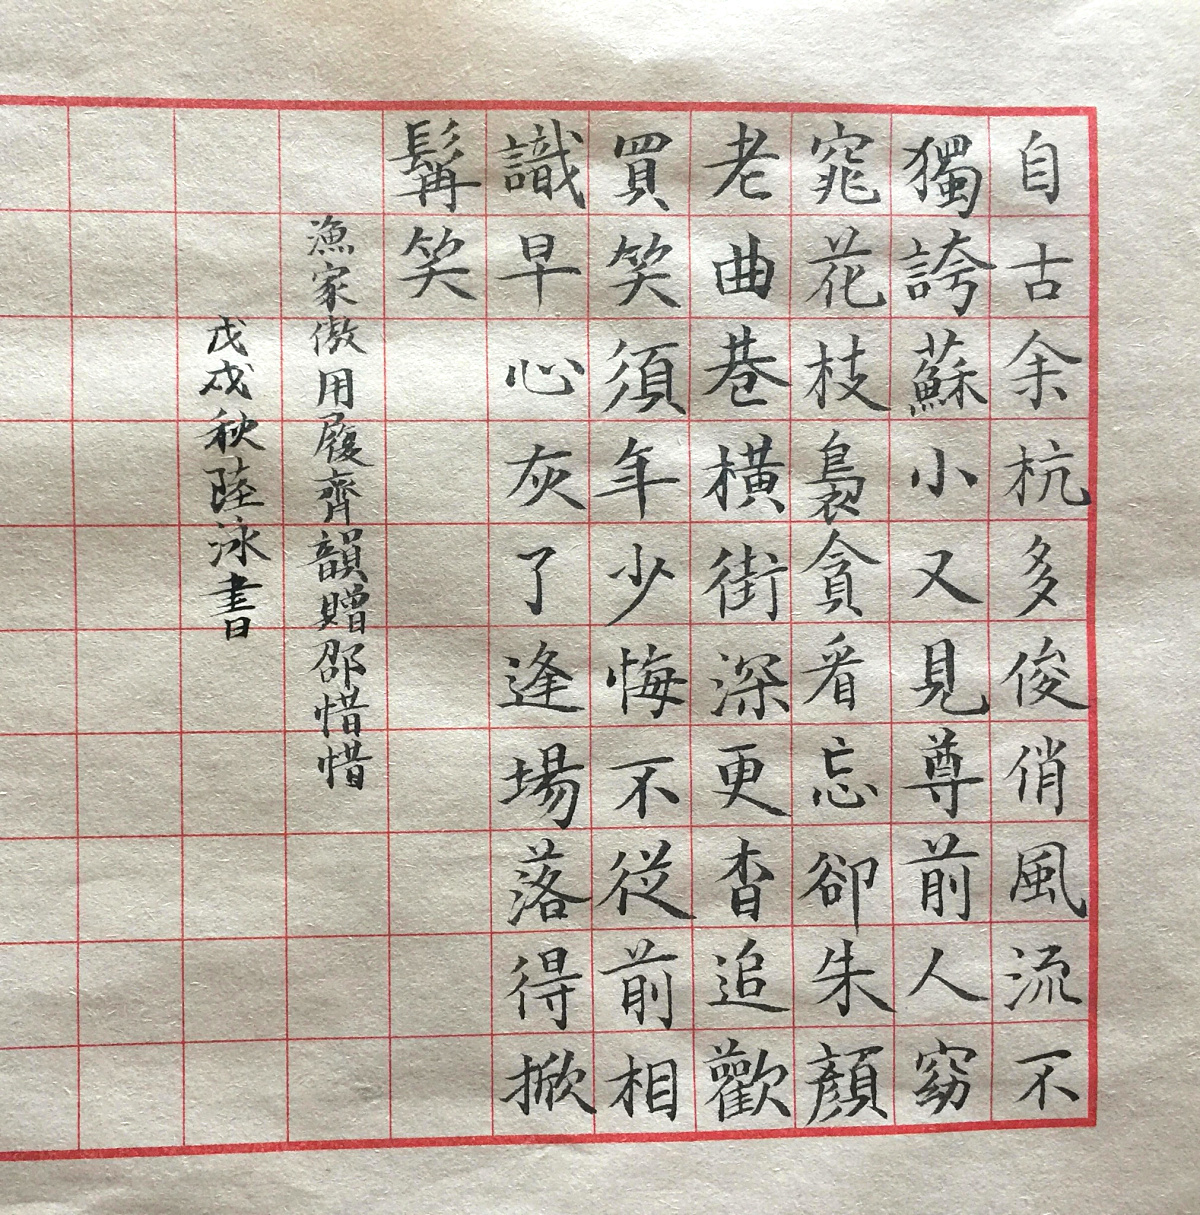 自古余杭多俊俏風流不
獨誇蘇小又見尊前人窈
窕花枝裊貪看忘卻朱顏
老曲巷橫街深更杳追歡
買笑須年少悔不從前相
識早心灰了逢場落得掀
髯笑
漁家傲用履齊韻贈邵惜惜
戊戌秋陸泳書